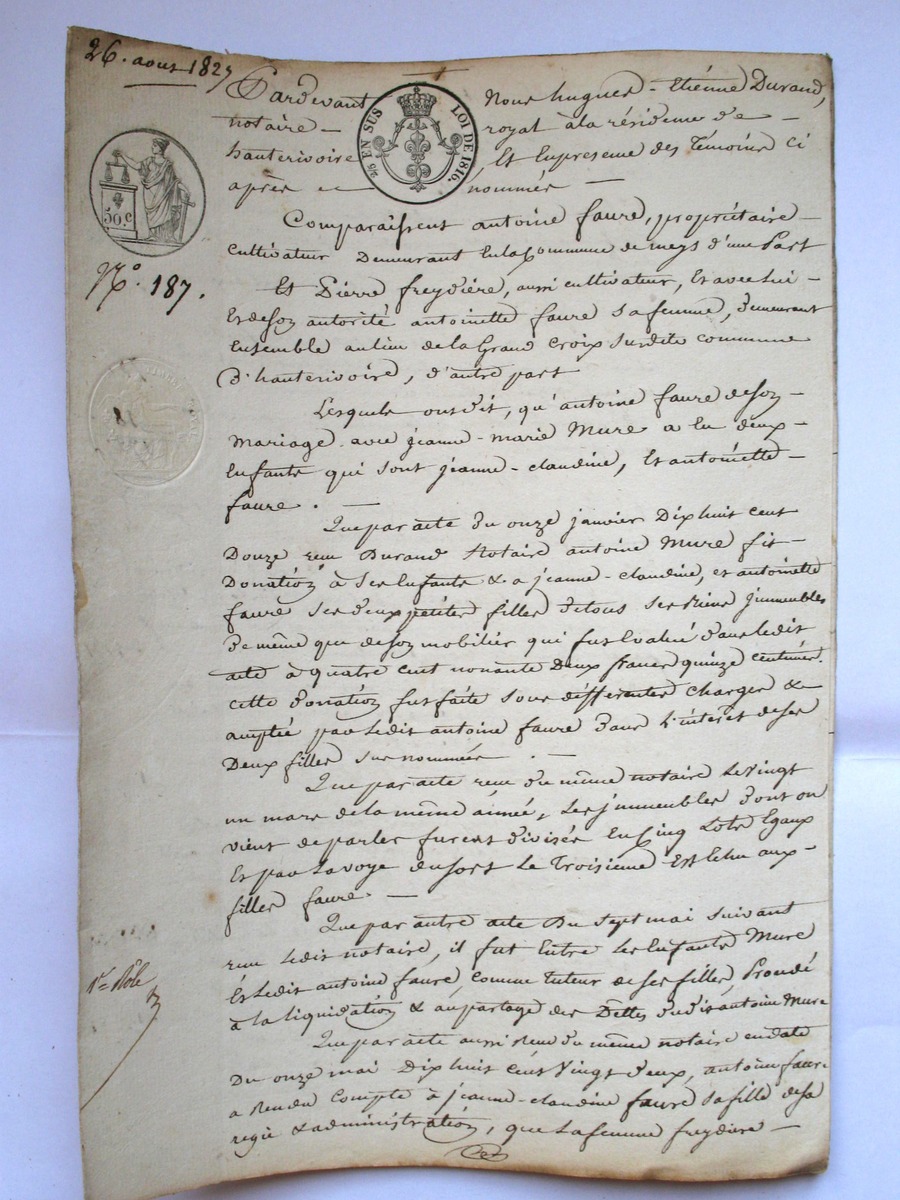 26. aout 1827
Pardevant Nous hugues - Etiénne Durand,
notaire - royal à la résidence de -
hauterivoire Et En presence des Témoins ci
après nommés -
2/5 EN SUS LOI DE 1816.
50.c
N.° 187.
Comparaissent antoine faure, propriétaire -
cultivateur Demeurant En la Commune de meys d'une Part
Et Pierre freydière, aussi cultivateur, Et avec lui -
Et de son autorité antoinette faure sa femme, demeurant
Ensemble au lieu de la Grand Croix susdite commune
d'hauterivoire, d'autre part
Lesquels ont dit, qu'antoine faure de son -
mariage avec jeanne - marie Mure a Eu deux -
Enfants qui sont jeanne - claudine, Et antoinette -
faure. -
Que par acte du onze janvier Dix huit cent
Douze reçu Durand Notaire antoine Mure fit -
Donation à ses Enfants & a jeanne - claudine, et antoinette
faure ses deux petites filles de tous ses biens jmmeubles
de même que de son mobilier qui fut Evalué dans ledit
acte à quatre cent nonante Deux francs quinze centimes.
cette donation fut faite sous différentes charges &
acceptée par Ledit antoine faure dans L'intérêt de ses
Deux filles sus nommées. -
Que par acte reçu du même notaire Le Vingt
un mars de la même année, Les jmmeubles dont on
vient de parler furent divisés En Cinq Lots Egaux
Et par La voye du sort Le Troisieme Est Echu aux -
filles faure. -
Que par autre acte Du sept mai suivant
reçu ledit notaire, il fut Entre Les Enfants Mure
Et Ledit antoine faure, comme tuteur de ses filles, Procédé
à la liquidation & au partage des Dettes dudit antoine Mure
1.er Rôle
Que par acte aussi Reçu du même notaire en date
Du onze mai Dix huit cent Vingt deux, antoine faure
a Rendu Compte à jeanne - claudine faure sa fille de sa
regie & administration, que La femme freydiere -